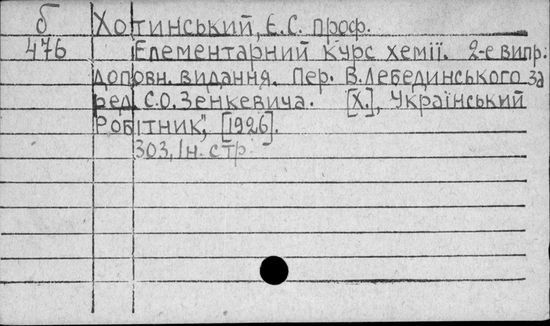 б Хотинський, Є.С. проф.
476 Елементарний курс хемії. 2-е випр.
доповн. видання. Пер. В.Лебединського за
ред. С.О.Зенкевича. [Х.], Український
Робітник", [1926].
303, Ін. стр.